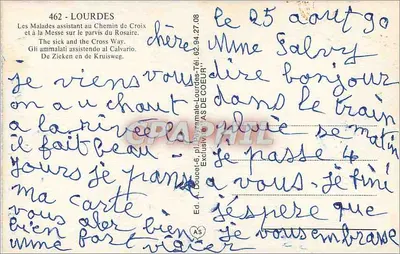 462 - LOURDES
Les Malades assistant au Chemin de Croix
et à la Messe sur le parvis du Rosaire.
The sick and the Cross Way.
Gli ammalati assistendo al Calvario.
De Zieken en de Kruisweg.
le 25 aout 90
chère Mme Salvy
je viens vous dire bonjour
on a u chaut dans le train
a la rivée la pluie se matin
il fait beau je passe 4
jours je pans a vous - je fini
ma carte j'espère que
vous aler bien je vous embrasse
bien fort
Mme vigier
Ed. A. Doucet - 6, pl. Lourdes - Tél. 62.94.27.08
"AS DE COEUR"
AS
CPAPHIL